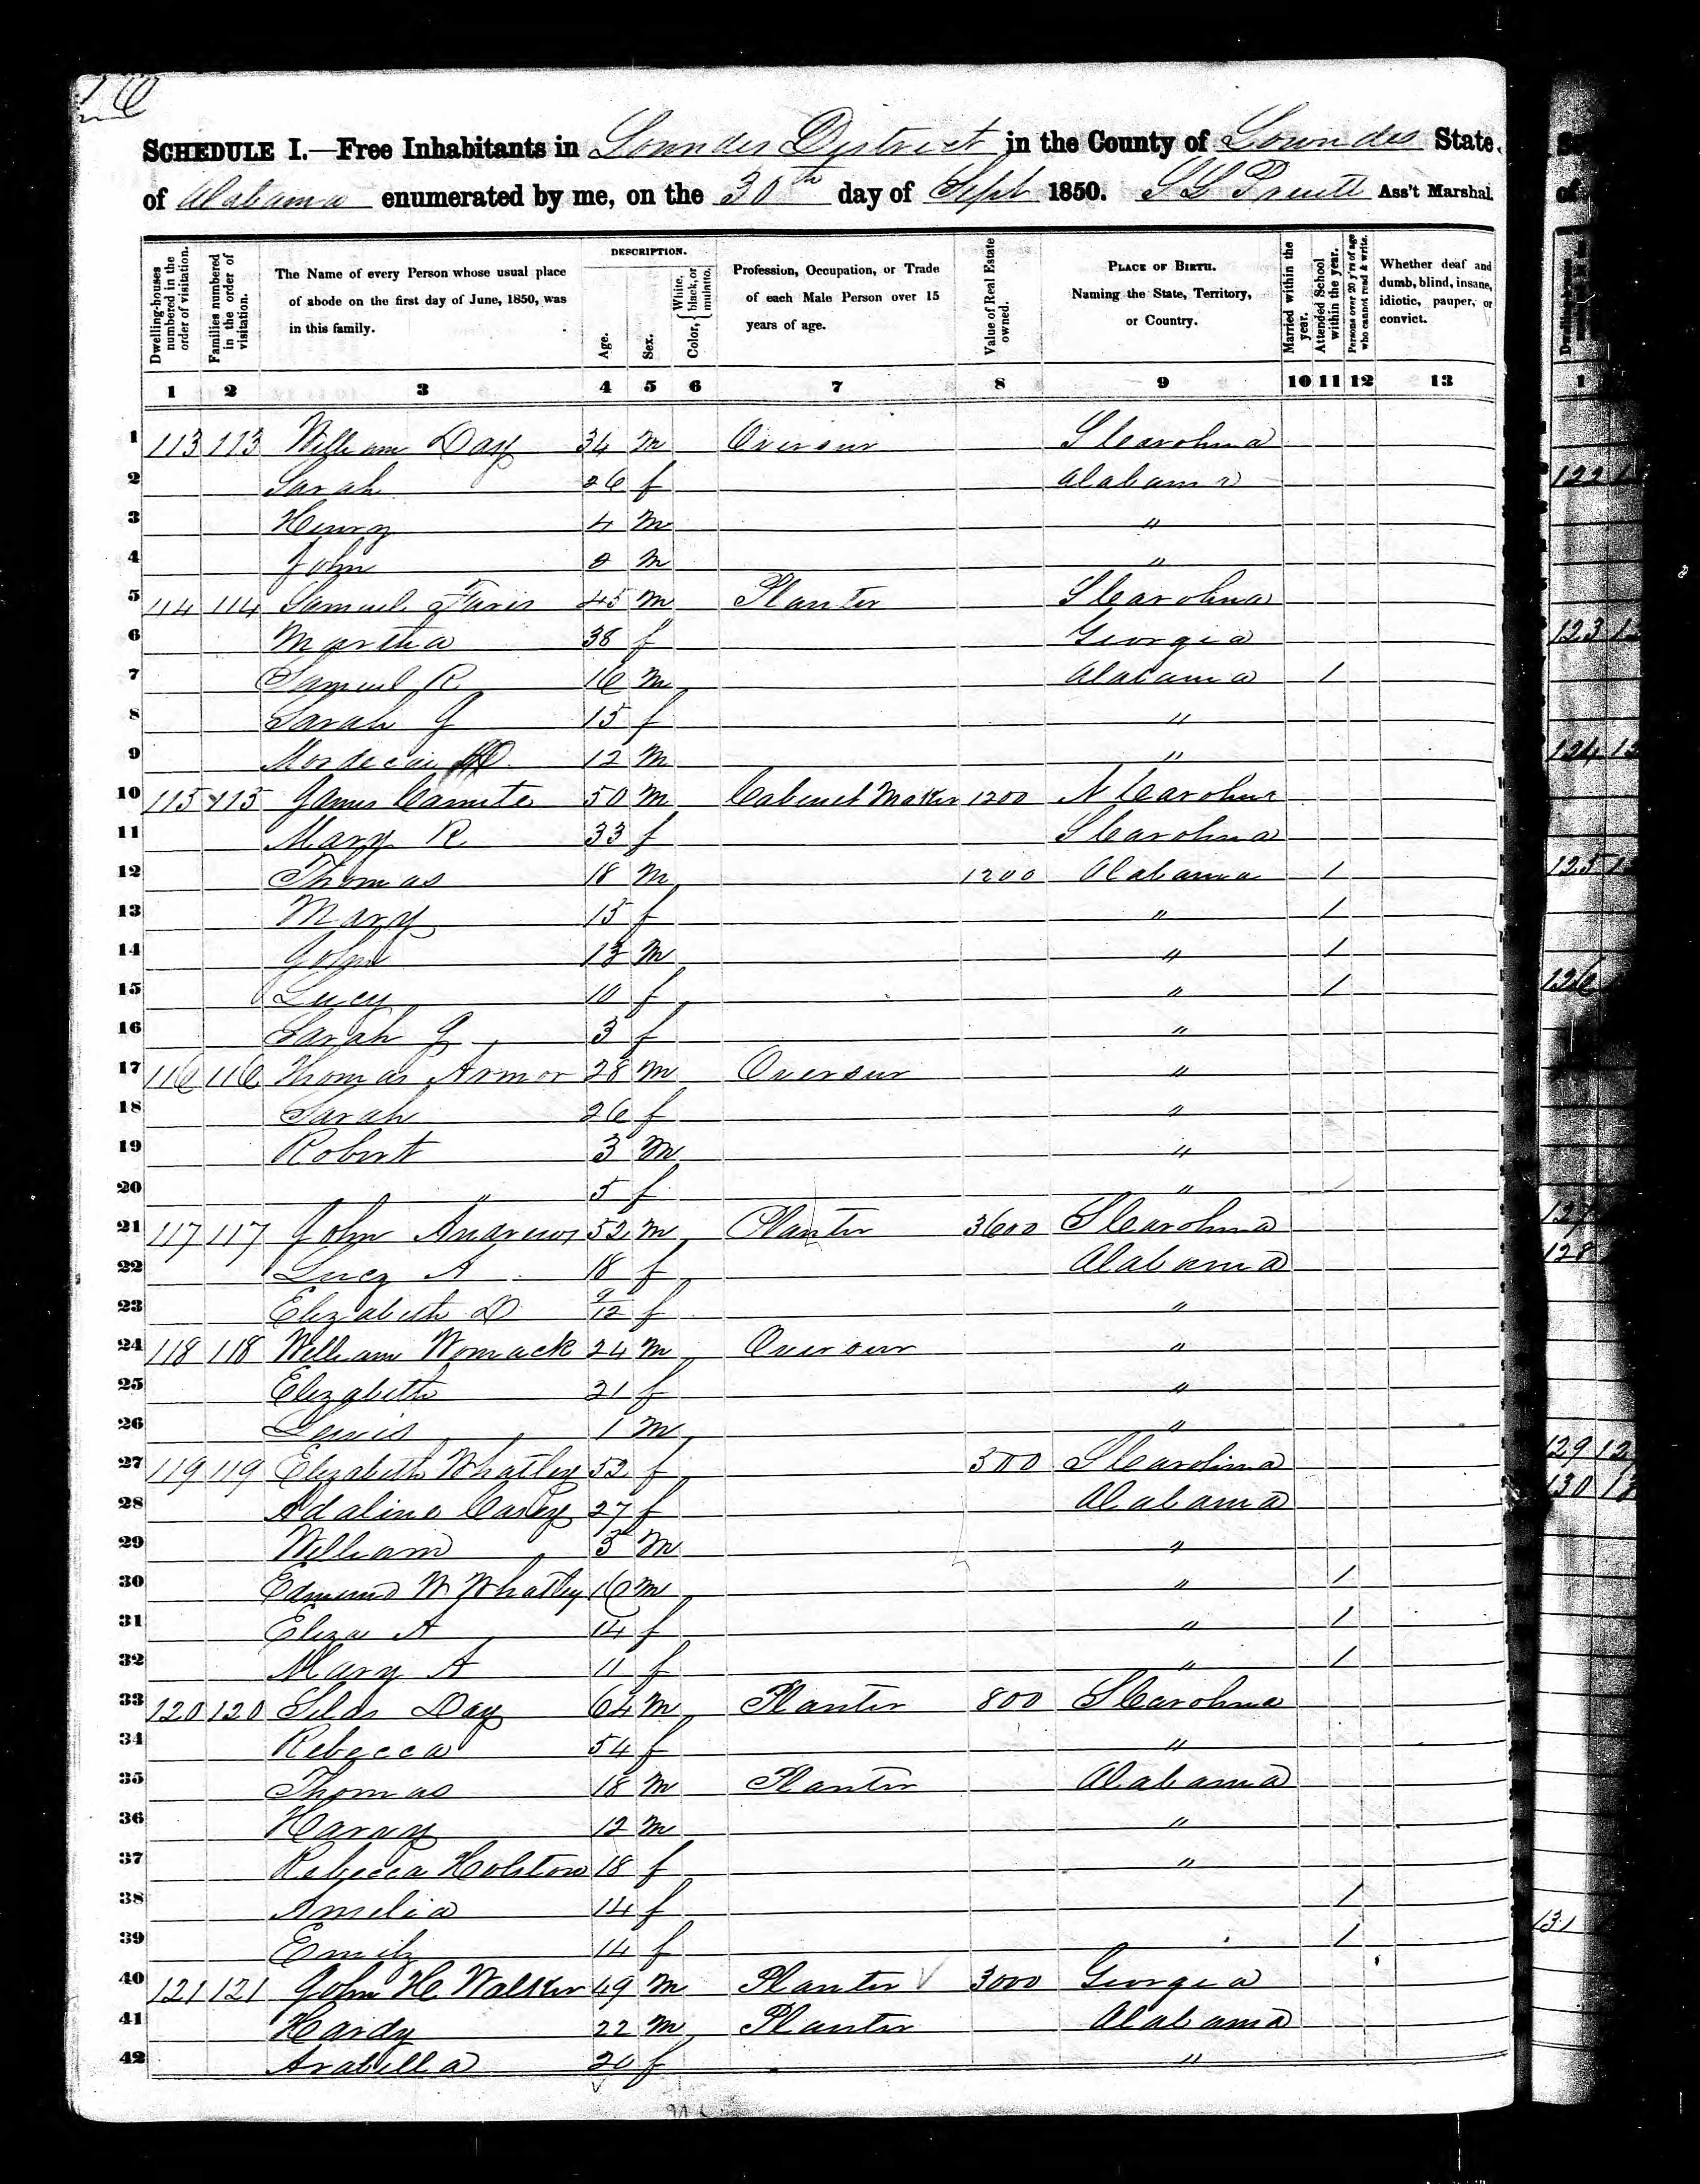 SCHEDULE I.—Free Inhabitants in Lowndes District in the County of Lowndes State
of Alabama enumerated by me, on the 30th day of Sept 1850. S L Pruitt Ass't Marshal.
Dwelling-houses numbered in the order of visitation. Families numbered in the order of visitation. The Name of every Person whose usual place of abode on the first day of June, 1850, was in this family. DESCRIPTION. Age. Sex. Color, { White, black, or mulatto. Profession, Occupation, or Trade of each Male Person over 15 years of age. Value of Real Estate owned. PLACE OF BIRTH. Naming the State, Territory, or Country. Married within the year. Attended School within the year. Persons over 20 y'rs of age who cannot read & write. Whether deaf and dumb, blind, insane, idiotic, pauper, or convict.
1 2 3 4 5 6 7 8 9 10 11 12 13
1 113 113 William Day 34 m Overseer S Carolina
2 Sarah 26 f Alabama
3 Henry 4 m "
4 John 2 m "
5 114 114 Samuel Faris 45 m Planter S Carolina
6 Martha 38 f Georgia
7 Samuel R 16 m Alabama /
8 Sarah J 15 f "
9 Mordecai 12 m "
10 115 115 James 50 m Cabinet Maker 1200 N Carolina
11 Mary R 33 f S Carolina
12 Thomas 18 m 1200 Alabama /
13 Mary 15 f " /
14 John 13 m " /
15 Lucy 10 f " /
16 Sarah J 3 f "
17 116 116 Thomas Armor 28 m Overseer "
18 Sarah 26 f "
19 Robert 3 m "
20 " 5 f "
21 117 117 John Andrews 52 m Planter 3600 S Carolina
22 Lucy A 18 f Alabama
23 Elizabeth D 9/12 f "
24 118 118 William Womack 24 m Overseer "
25 Elizabeth 21 f "
26 Lewis 1 m "
27 119 119 Elizabeth Whatley 52 f 300 S Carolina
28 Adaline Casey 27 f Alabama
29 William 5 m "
30 Edmund W Whatley 16 m " /
31 Eliza A 14 f " /
32 Mary A 11 f " /
33 120 120 Silas Day 64 m Planter 800 S Carolina
34 Rebecca 54 f "
35 Thomas 18 m Planter Alabama
36 Harvy 12 m "
37 Rebecca Holston 18 f "
38 Amelia 14 f /
39 Emily 14 f /
40 121 121 John H Walker 49 m Planter 3000 Georgia
41 Hardy 22 m Planter Alabama
42 Arabella 20 f "
1
122
123
124
125
126
127
128
129 12
130 13
131